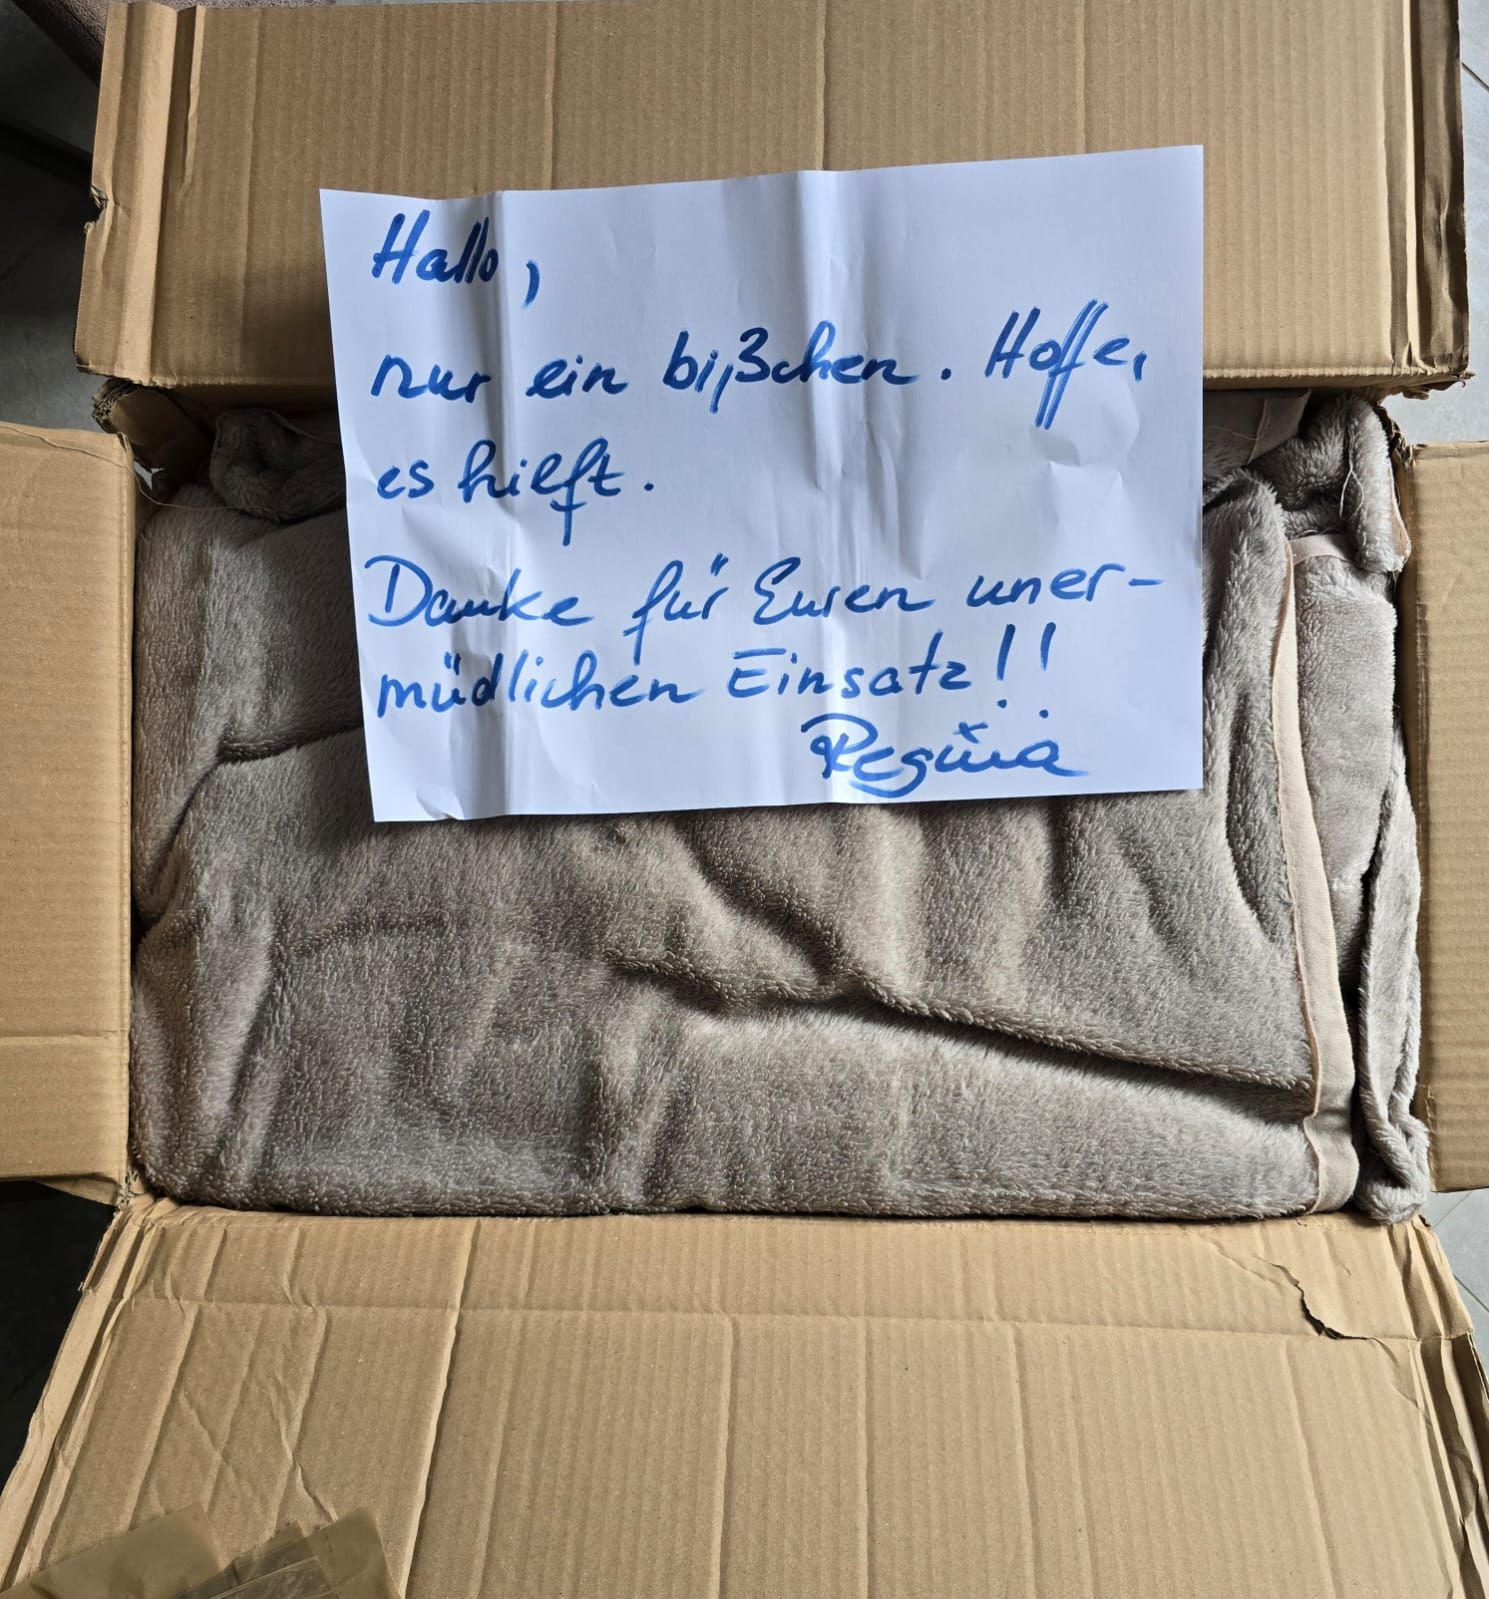 Hallo,
nur ein bißchen. Hoffe,
es hilft.
Danke für Euren uner-
müdlichen Einsatz!!
Regina